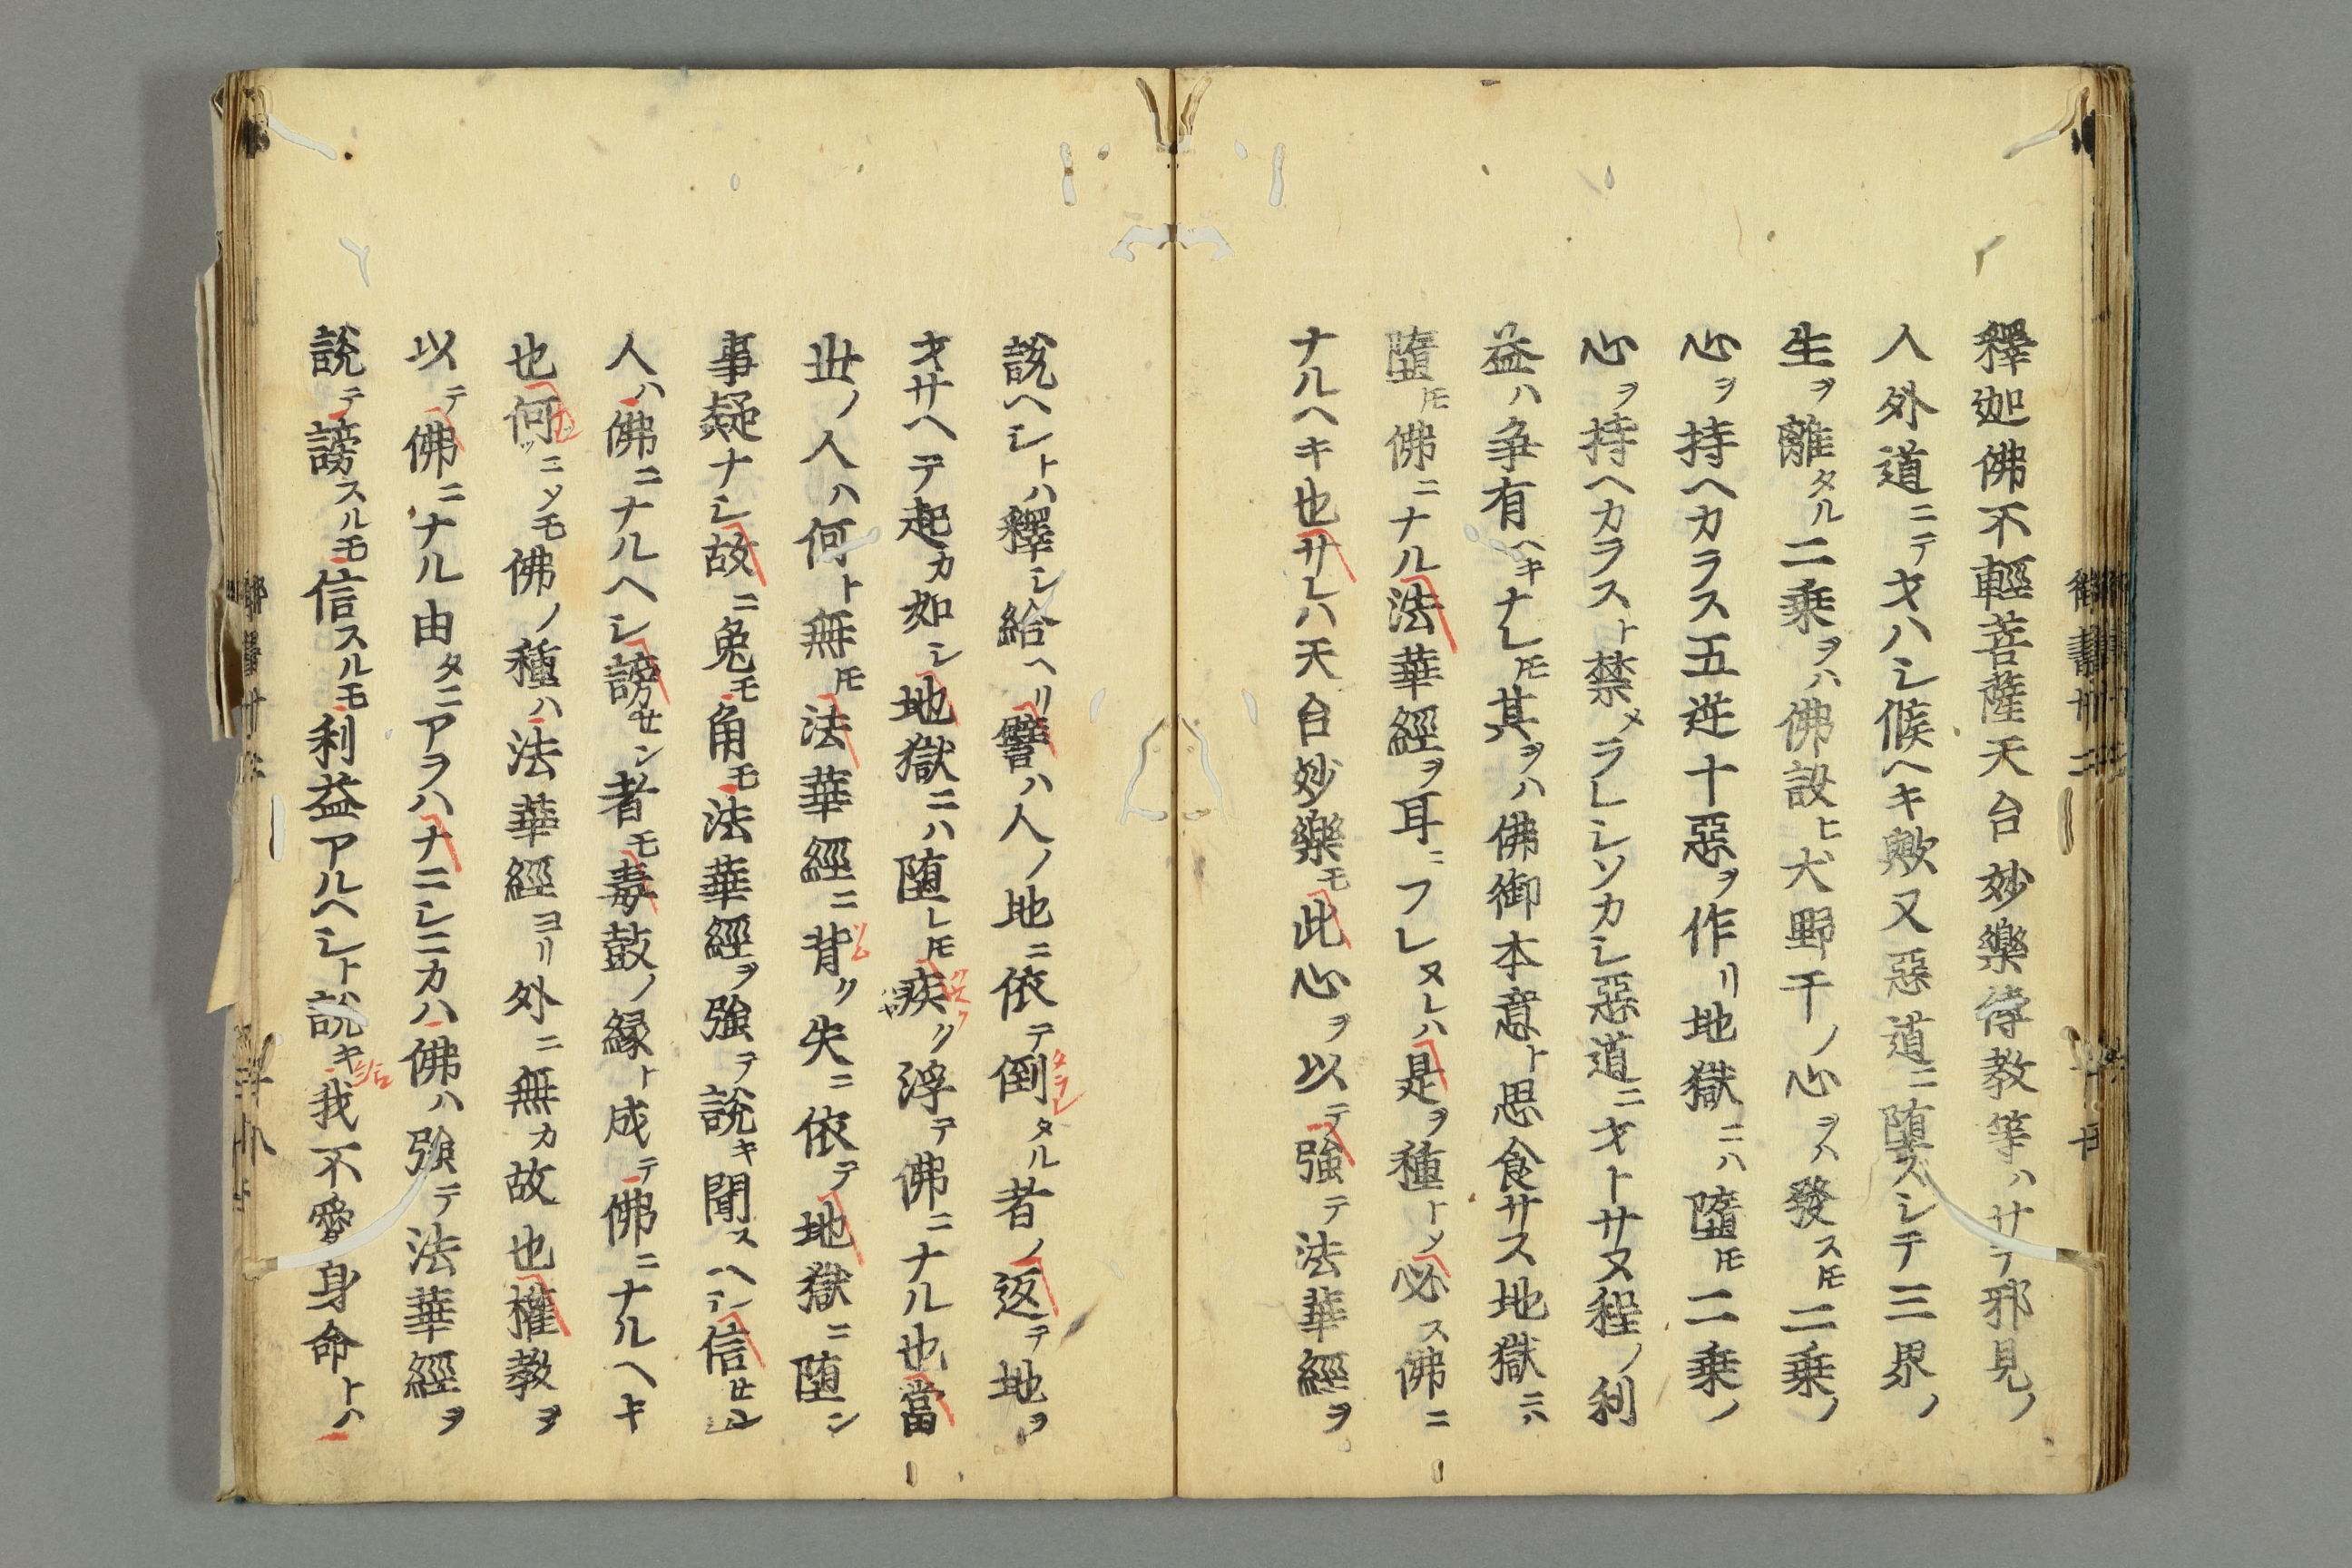 釋迦佛不輕菩薩天台妙樂傳教等ハサテ邪見ノ
人外道ニテヲハシ候ヘキ歟又惡道ニ堕スシテ三界ノ
生ヲ離タル二乗ヲハ佛説ヒ犬野干ノ心ヲハ發ストモ二乗ノ
心ヲ持ヘカラス五逆十惡ヲ作リ地獄ニハ墮トモ二乗ノ
心ヲ持ヘカラスト禁メラレシソカシ惡道ニヲトサヌ程ノ利
益ハ争有ヘキナレトモ其ヲハ佛御本意ト思食サス地獄ニハ
墮トモ佛ニナル法華經ヲ耳ニフレヌレハ是ヲ種トメ必ス佛ニ
ナルヘキ也サレハ天台妙樂モ此心ヲ以テ強テ法華經ヲ
説ヘシトハ釋シ給ヘリ譬ハ人ノ地ニ依テ倒タル者ノ返テ地ヲ
ヲサヘテ起カ如シ地獄ニハ堕レトモ疾ク浮テ佛ニナル也當
世ノ人ハ何ト無トモ法華經ニ背ク失ニ依テ地獄ニ堕ン
事疑ナシ故ニ兎モ角モ法華經ヲ強テ説キ聞スヘシ信セン
人ハ佛ニナルヘシ謗セン者モ毒鼓ノ縁ト成テ佛ニナルヘキ
也何ニメモ佛ノ種ハ法華經ヨリ外ニ無カ故也權教ヲ
以テ佛ニナル由タニアラハナニシニカハ佛ハ強テ法華經ヲ
説テ謗スルモ信スルモ利益アルヘシト説キ我不愛身命トハ